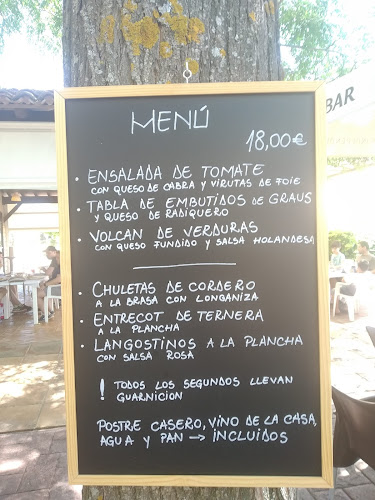 BAR
MENÚ
18,00€
• ENSALADA DE TOMATE
CON QUESO DE CABRA Y VIRUTAS DE FOIE
• TABLA DE EMBUTIDOS DE GRAUS
Y QUESO DE RADIQUERO
• VOLCAN DE VERDURAS
CON QUESO FUNDIDO Y SALSA HOLANDESA
• CHULETAS DE CORDERO
A LA BRASA CON LONGANIZA
• ENTRECOT DE TERNERA
A LA PLANCHA
• LANGOSTINOS A LA PLANCHA
CON SALSA ROSA
! TODOS LOS SEGUNDOS LLEVAN
GUARNICION
POSTRE CASERO, VINO DE LA CASA,
AGUA Y PAN → INCLUIDOS